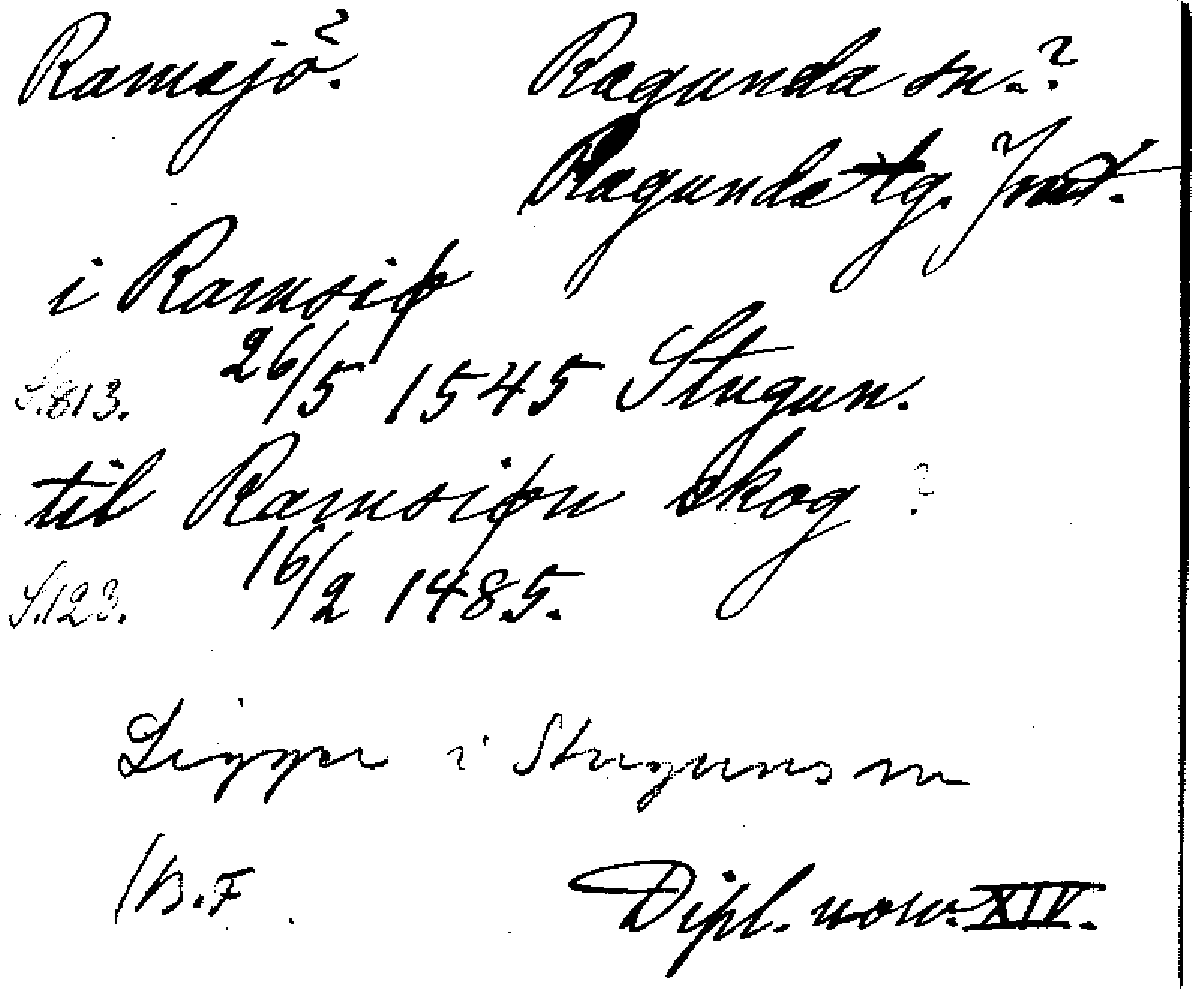 Ramsjö? Ragunda sn.?
Ragunda tg. Jmt.?
i Ramsiø
S.813. 26/5 1545 Stugun.
til Ramsiøn skog ?
S.123. 16/2 1485.
Ligger i Stuguns sn
/B.F.
Dipl. norv. XIV.